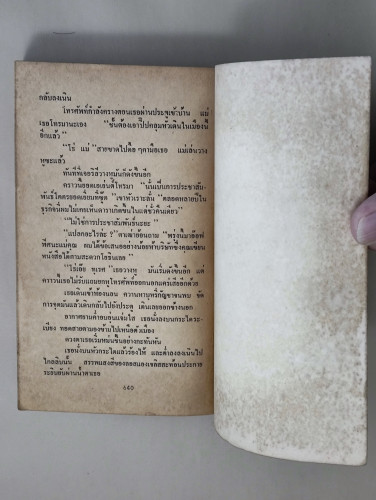 กลับลงเนิน
โทรศัพท์กำลังครางตอนเธอผ่านประตูเข้าบ้าน แม่
เธอโทรมานะเอง "ฉันต้องเอาปี๊ปคลุมหัวเดินในเมืองนี้
อีกแล้ว"
"โธ่ แม่" สายขาดไปดื้อ ๆ คามือเธอ แม่เล่นวาง
หูซะแล้ว
ทันทีที่เจอริลีวางหูมันก็ดังขึ้นอีก
คราวนี้ยอดเยล่นส์โทรมา "นั่นเป็นการประชาสัม-
พันธ์โคตรยอดเยี่ยมที่สุด" เขาหัวเราะลั่น "ตลอดหลายปีใน
ธุรกิจที่ผมไม่เคยเห็นดาราเกิดขึ้นในแค่ชั่วคืนเดียว"
"ไม่ใช่การประชาสัมพันธ์นะยะ"
"แปลกอะไรล่ะ ?" คนฆ่าย้อนถาม "พรุ่งนี้มาอ๊อฟ
ฟิศนะแม่คุณ ผมได้ข้อเสนออย่างน้อยห้าบริษัทซึ่งคุณเขียน
หนังสือได้ตามสะดวกโยธินเลย"
"ไร้เอี้ย ทุเรศ" เธอวางหู มันเริ่มดังขึ้นอีก แต่
คราวนี้เธอไม่รับแถมยกหูโทรศัพท์ออกนอกแคร่เสียอีกด้วย
เธอเดินเข้าห้องนอน คว้าหาบุหรี่กัญชาขนพบ ขีด
การจุดมันแล้วเดินกลับไปยังประตู เดินเลยออกข้างนอก
อากาศยามค่ำอบอุ่นแจ่มใส เธอนั่งลงบนกระไดระ-
เบียง ทอดสายตามองข้ามไปเหนือตัวเมือง
ดวงตาเธอเริ่มหม่นขึ้นอย่างกะทันหัน
เธอนั่งบนหัวกระไดแล้วร้องไห้ และต่ำลงลงเนินไป
ใกล้สิบนั้น สรรพแสงสีของลอสแองเจลิสสะท้อนประกาย
ระยิบยับผ่านน้ำตาเธอ
๔๔๐